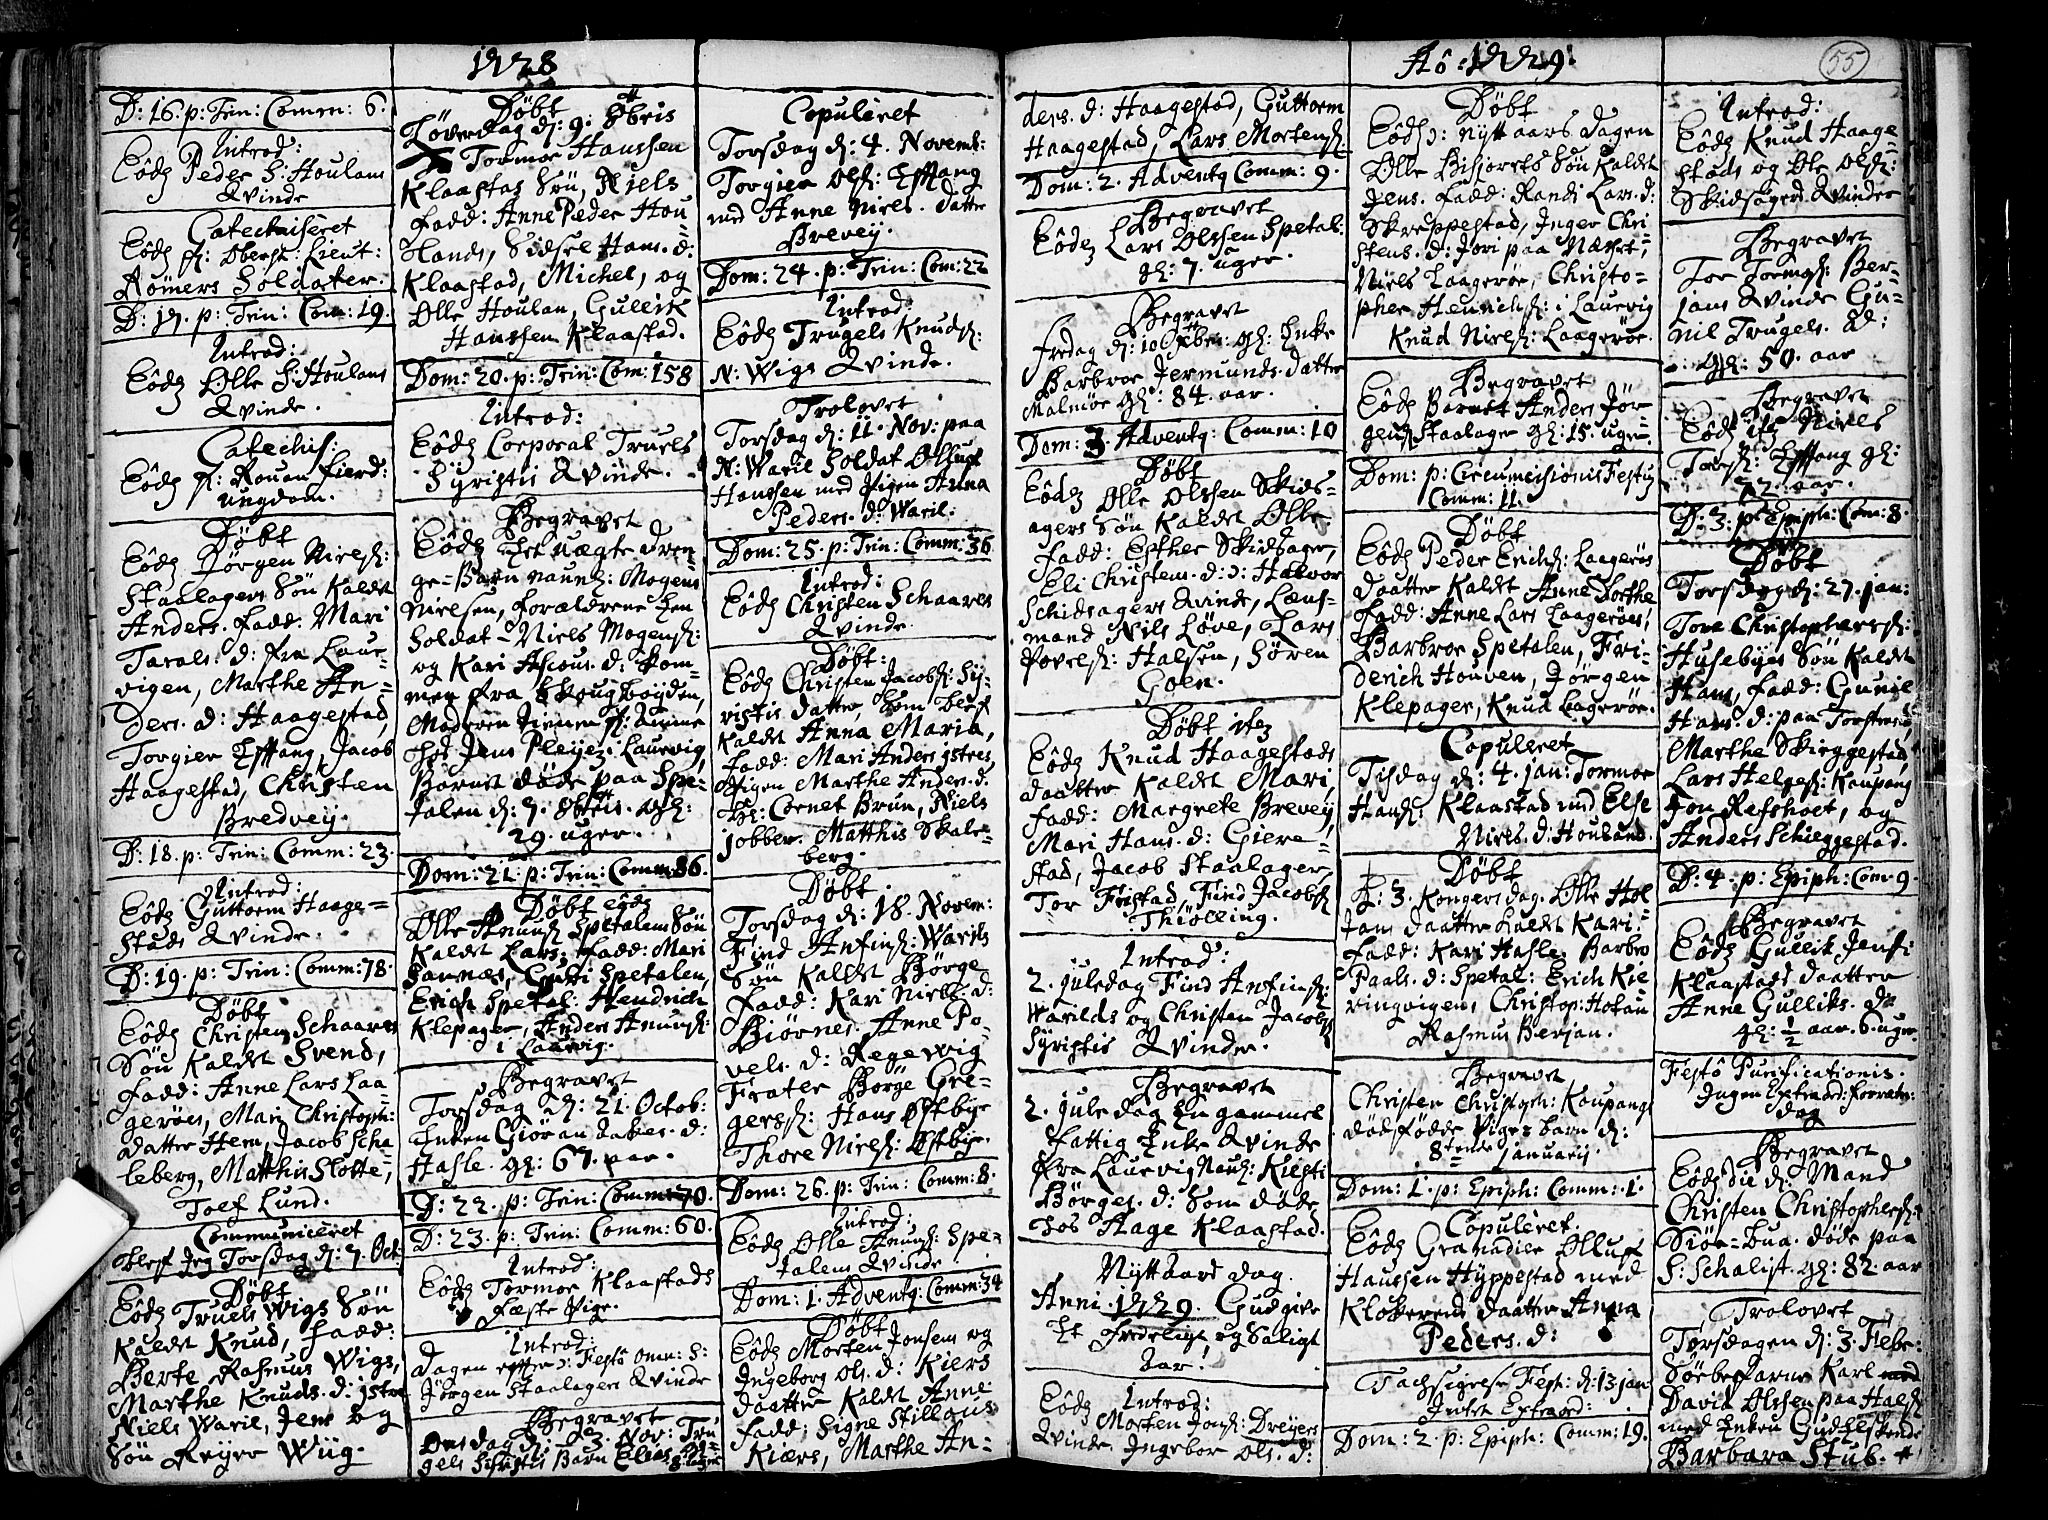 1728
D: 16. p: Trin: Comm: 6.
Introd:
Eôdẽ Peder S: Houlans
Qvinde
Catechiseret
Eôdẽ H: Oberst: Lieut:
Römers Soldater.
D: 17. p: Trin: Com: 19.
Introd:
Eôdẽ Olle S: Houlans
Qvinde.
Catechis:
Eôdẽ H: Rouan Fierd:
ungdom.
Döbt
Eôdẽ Jörgen Niels:
Staalagers Sön Kaldt
Anders. Fadd: Mari
Tarals. d: fra Laur-
vigen, Marthe An=
ders. d: Haagestad,
Torgier Efftang, Jacob
Haagestad, Christen
Bredvey.
D: 18. p: Trin: Comm: 23.
Introd:
Eôdẽ Guttorm Haage=
stads Qvinde.
D: 19. p: Trin: Comm: 78.
Döbt
Eôdẽ Christen Schaares
Sön Kaldt Svend,
Fadd: Anne Lars Laa
geröes, Mari Christoph:
datter Hem, Jacob Scha
leberg, Matthis Slotte,
Tolf Lund.
Communiceret
Jeg Torsdag d: 7. Oct:
Döbt
Eôdẽ Truels Wigs Sön
Kaldt Knud, Fadd:
Berte Rasmus Wigs,
Marthe Knuds. d: jstre
Niels Waril, Jens og
Sön Reyer Wiig.
Döbt
Löverdag d: 9: 8bris
Tormoe Hanssen
Klaastas Sön, Niels
Fadd: Anne Peder Hou
lands, Sidsel Hans. d:
Klaastad, Michel, og
Olle Houlan, Gullik
Hanssen Klaastad.
Dom: 20. p: Trin: Com: 158
Introd:
Eôdẽ Corporal Truels
Syristis Qvinde.
Begravet
Eôdẽ Het uægte dren-
ge=Barn naunl: Mogens
Nielsen, Forældrene Een
Soldat Niels Mogens:
og Kari Ascous. d: kom
men fra Skougböyden,
Moderen Jens Pleyer i Laurvig,
Barnet döde paa Spe-
talen d: 7. 8bris. gl:
29. uger.
Dom: 21. p: Trin: Comm: 86.
Döbt eôdẽ
Olle Anuns: Spetalens Sön
Kaldt Lars, Fadd: Mari
Sannæs, Guri Spetalen,
Erich Spetal: Hendrich
Klepager, Anders Anuns:
i Laurvig.
Begravet
Torsdag d: 21. Octob:
Enken Giöran Jakes. d:
Hasle. gl: 67. aar.
D: 22. p: Trin: Comm: 70.
D: 23. p: Trin: Comm: 60.
Introd:
Eôdẽ Tormoe Klaastads
Fæste Pige.
Introd:
Dagen efftr : Festô omn: S:
Jörgen Staalagers Qvinde
Begravet
Onsdag d: 3. Nov: Tru
gels Siristis Barn Elias
Copuleret
Torsdag d: 4. Novemb:
Torgier Ols: Efftang
med Anne Niels. datter
Brevey.
Dom: 24. p: Trin: Com: 22
Introd
Eôdẽ Trugels Knuds:
N: Wigs Qvinde.
Trolovet
Torsdag d: 11. Nov: paa
N: Waril Soldat Olluf
Hanssen med Pigen Anna
Peders. d: Waril.
Dom: 25. p: Trin: Comm: 36
Introd:
Eôdẽ Christen Schaares
Qvinde.
Döbt:
Eôdẽ Christen Jacobs: Sy-
ristis datter, som blef
Kaldt Anna Maria,
Fadd: Mari Anders jstres,
Pigen Marthe Anders. d.
Hr: Cornet Brun, Niels
jobber. Matthis Skale-
berg.
Döbt
Torsdag d: 18. Novem:
Find Anfins: Warils
Sön Kaldt Börge
Fadd: Kari Niels: d:
Biörnes. Anne Po-
vels. d: Regewig
Firater Börge Gre-
gers: Hans Östbye
Thore Niels: Östbye.
Dom: 26. p: Trin: Comm: 8.
Introd:
Eôdẽ Olle Anuns: Spe=
talens Qvinde
Dom: 1. Advent: Comm: 34
Döbt
Eôdẽ Morten Jonsens og
Ingeborg Ols. d: Kiers
daatter Kaldt Anne
Fadd: Signe Stillaus
Kiærs, Marthe An=
Aô: 1729.
55
ders. d: Haagestad, Guttorm
Haagestad, Lars Mortens:
Dom: 2. Advent Comm: 9.
Begravet
Eôdẽ Lars Olssen Spetal:
gl: 7. uger.
Begravet
Fredag d: 10 Xber: gl: Enke
Barbroe Jermunds. datter
Malmöe gl: 84. aar.
Dom: 3 Advent: Comm: 10
Döbt
Eôdẽ Olle Olssen Skids-
agers Sön Kaldt Olle
Fadd: Esther Skidsager,
Eli Christens. d: Halvor
Schidsagers Qvinde, Læns-
mand Nils Löve, Lars
Povels: Halsen, Sören
Goen.
Döbt itẽ
Eôdẽ Knud Haagestads
daatter Kaldt Mari,
Fadd: Margrete Brevey,
Mari Hans. d: Giere=
stad, Jacob Staalager,
Tor Find Jacobs:
Thiölling.
Introd:
2. juledag Find Anfins:
Warilds og Christen Jacobs:
Syristis Qvinder.
Begravet
2. juledag En gammel
Fattig Enke Qvinde
fra Laurvig naul: Kiersti
Börges. d: som döde
hos Aage Klaastad.
Nyttaars dag.
Anni. 1729. Gud give
Et Fredeligt og Saligt
Aar!
Introd:
Eôdẽ Morten Jons: Dreyers
Qvinde Ingebor Ols. d:
Döbt
Eôdẽ : nytt aars dagen
Olle Bisjorets Sön Kaldt
Jens. Fadd: Randi Lars. d:
Skreppestad, Inger Chri
stens. d: Jori paa Næsset,
Niels Laageröe, Christo-
pher Henrichs: i Laurvig
Knud Niels: Laageröe.
Begravet
Eôdẽ Barnet Anders Jör
gens: Staalager gl: 15. uger.
Dom: p: Circumcisionis Festũ
Comm: 11.
Döbt
Eôdẽ Peder Erichs: Laageröes
daatter Kaldt Anne Dorthe
Fadd: Anne Lars Laageröes,
Barbroe Spetalen, Fri-
derich Houven, Jörgen
Klepager, Knud Laageröe.
Copuleret
Tisdag d: 4. jan: Tormoe
Hans: Klaastad med Else
Niels. d: Houland.
Döbt
H: 3. Kongers dag. Olle Hol
Jans daatter kaldt Kari.
Fadd: Kari Hasle. Barbro
Paals. d: Spetal: Erich Kie
ringvigen, Christop: Hotau
Rasmus Berjan.
Begravet
Christen Christoph: Koupangs
dödfödde Piges barn d:
8tende january.
Dom: 1. p: Epiph: Comm: 1.
Copuleret.
Eôdẽ Granadier Olluf
Hanssen Hyppestad med
Klokerens daatter Anna
Peders. d:
Tachsigrese Fest: d: 13 jan
Intet Extraord:
Dom: 2. p: Epiph: Comm: 19.
Introd:
Eôdẽ Knud Haage-
stads og Ole Ols:
Skidsagers Qvinder
Begravet
Tor Torms: Ber-
jans Qvinde Gu-
nil Trugels. d:
gl: 50. aar
Begravet
Eôdẽ itẽ Niels
Tors: Efftang gl:
72. aar.
D: 3. p: Epiph: Com: 8.
Döbt
Torsdag d: 27. jan:
Tore Christophers:
Husebyes Sön Kaldt
Hans, Fadd: Gunil
Hans. d: paa Torstrand,
Marthe Skieggestad,
Lars Helges: Kaupang
Jon Refsholt, og
Anders Schieggestad.
D: 4. p: Epiph: Com: 9.
Begravet
Eôdẽ Gullik Jens:
Klaastads daatter
Anne Gulliks. d:
gl: ½ aar. 6. uger
Festô Purificationis.
Ingen Extraord: Forretn:
dag
Begravet
Eôdẽ die d: Mand
Christen Christophers:
Siöe-bua. döde paa
S: Schalist. gl: 82. aar
Trolovet
Torsdagen d: 3. Febr:
Söebefarne Karl
David Olssen paa Hals:
med Enken Gudelskende
Barbara Stub.